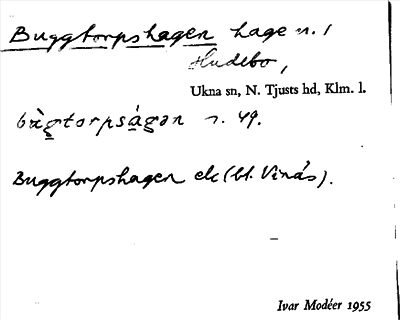 Buggtorpshagen hage n. 1
Hudebo,
Ukna sn, N. Tjusts hd, Klm. l.
bùgtorpságən n. 49.
Buggtorpshagen ek (bl. Vinäs).
Ivar Modéer 1955